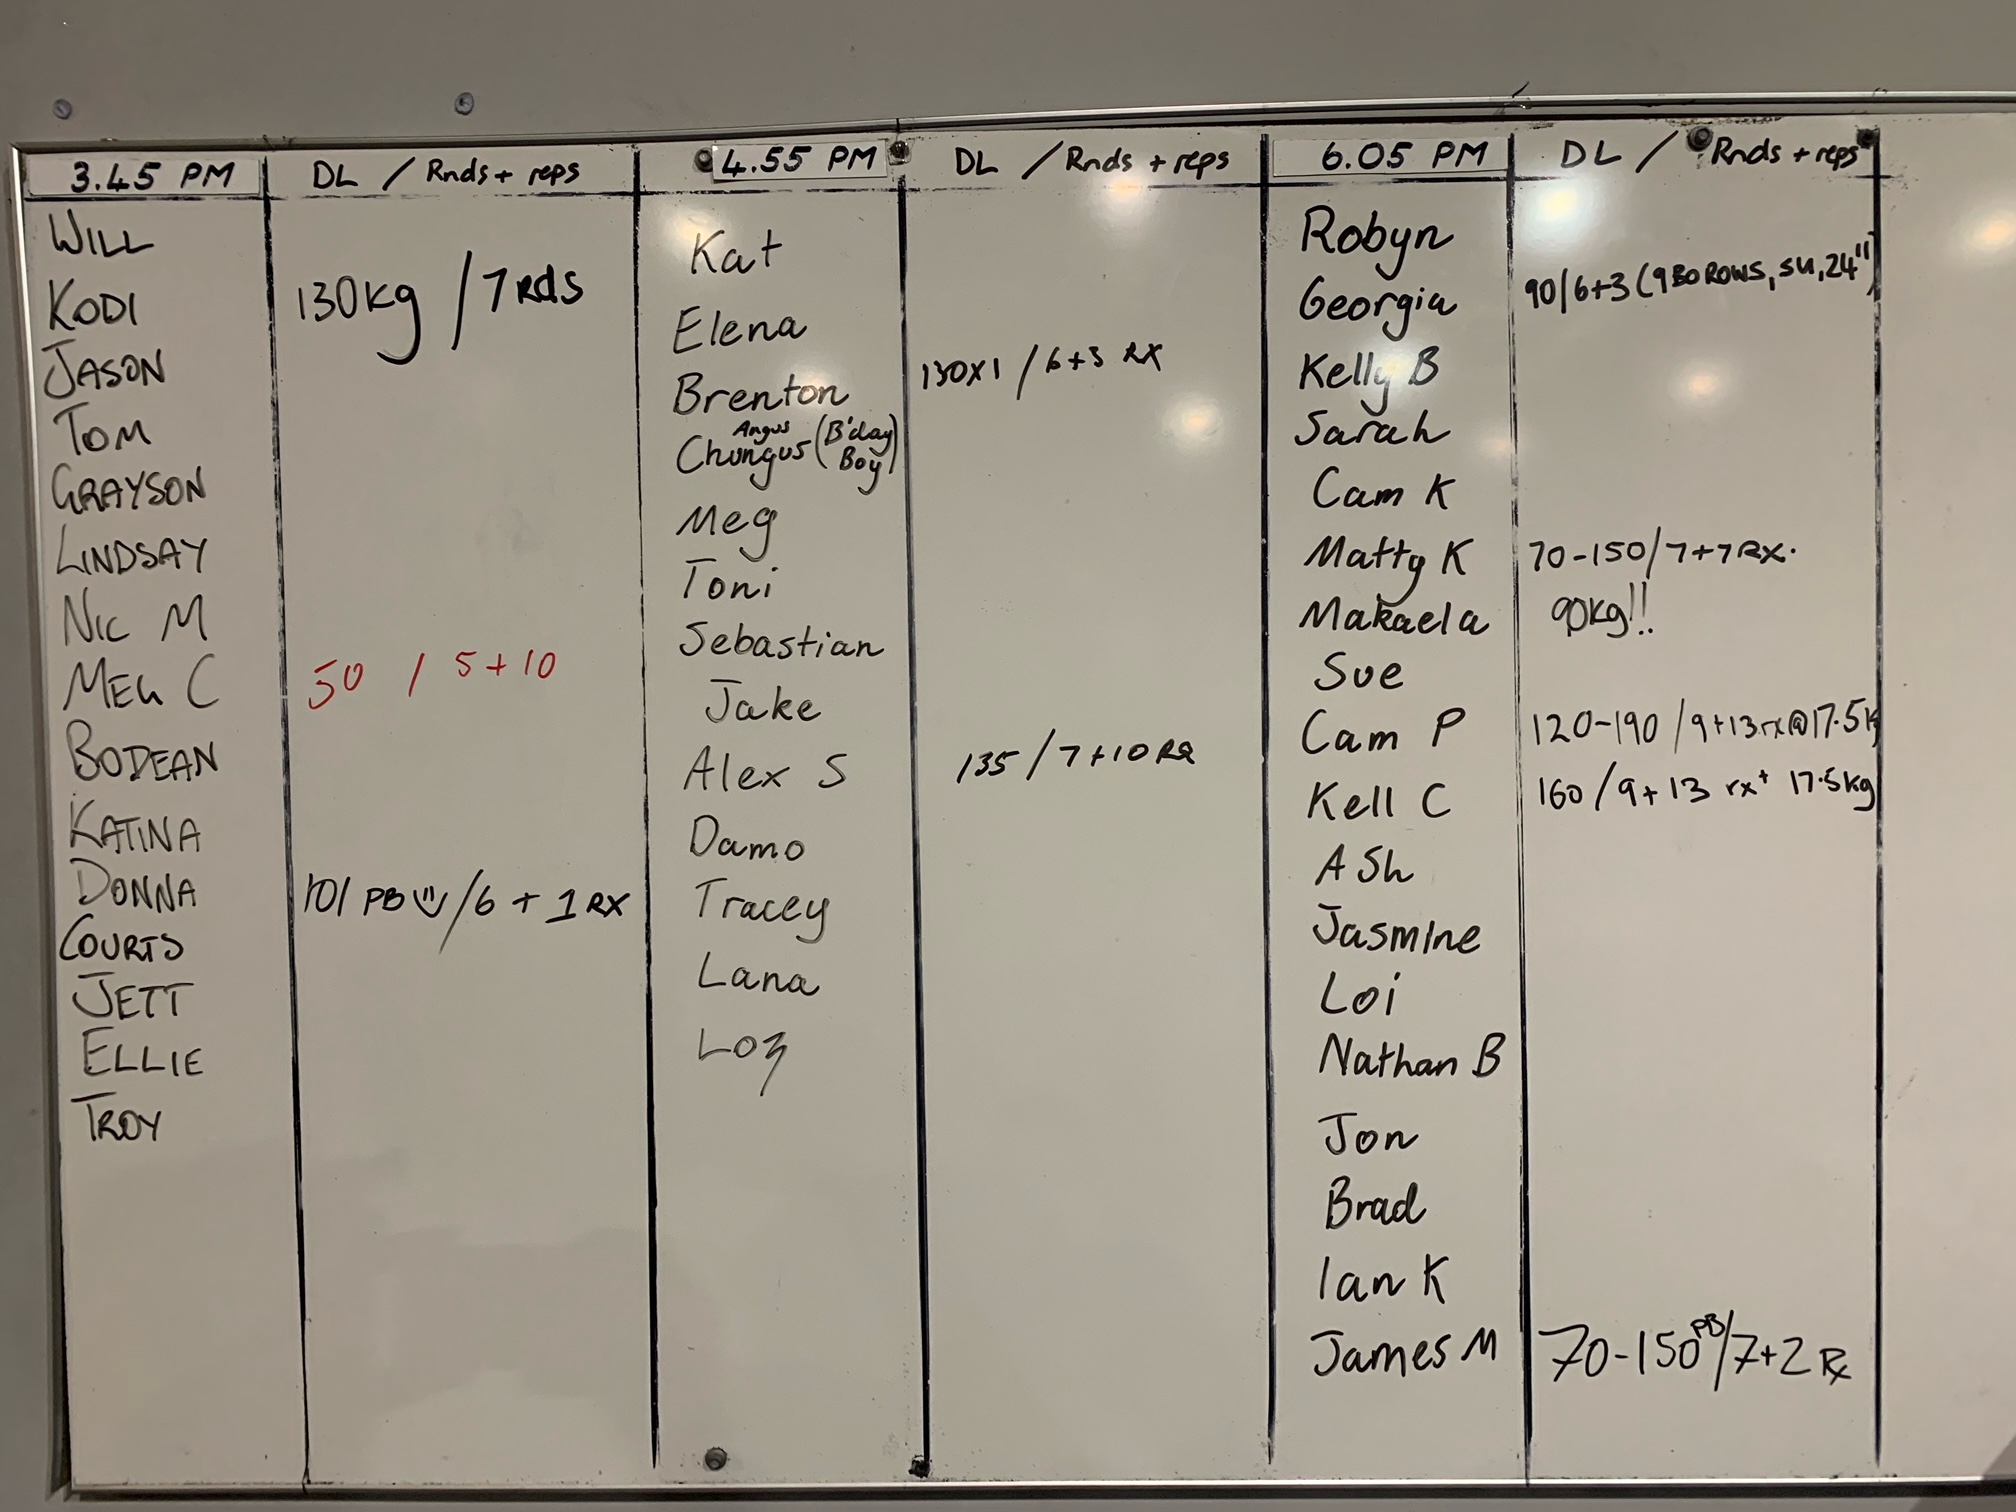 3.45 PM DL / Rnds + reps 4.55 PM DL / Rnds + reps 6.05 PM DL / Rnds + reps
WILL
KODI 130kg / 7 RdS
JASON
TOM
GRAYSON
LINDSAY
NIC M
MEG C 50 / 5 + 10
BODEAN
KATINA
DONNA 101 PB / 6 + 1 RX
COURTS
JETT
ELLIE
TROY
Kat
Elena
Brenton 130X1 / 6+3 RX
Angus
Chungus (B'day Boy)
Meg
Toni
Sebastian
Jake
Alex S 135 / 7 + 10 RX
Damo
Tracey
Lana
Loz
Robyn
Georgia 90/6+3 (9 BO ROWS, SU, 24")
Kelly B
Sarah
Cam K
Matty K 70-150/7+7 RX.
Makaela 90kg!!
Sue
Cam P 120-190 / 9+13 rx @ 17.5k
Kell C 160 / 9 + 13 rx+ 17.5kg
ASh
Jasmine
Loi
Nathan B
Jon
Brad
Ian K
James M 70-150 PB / 7+2 Rx